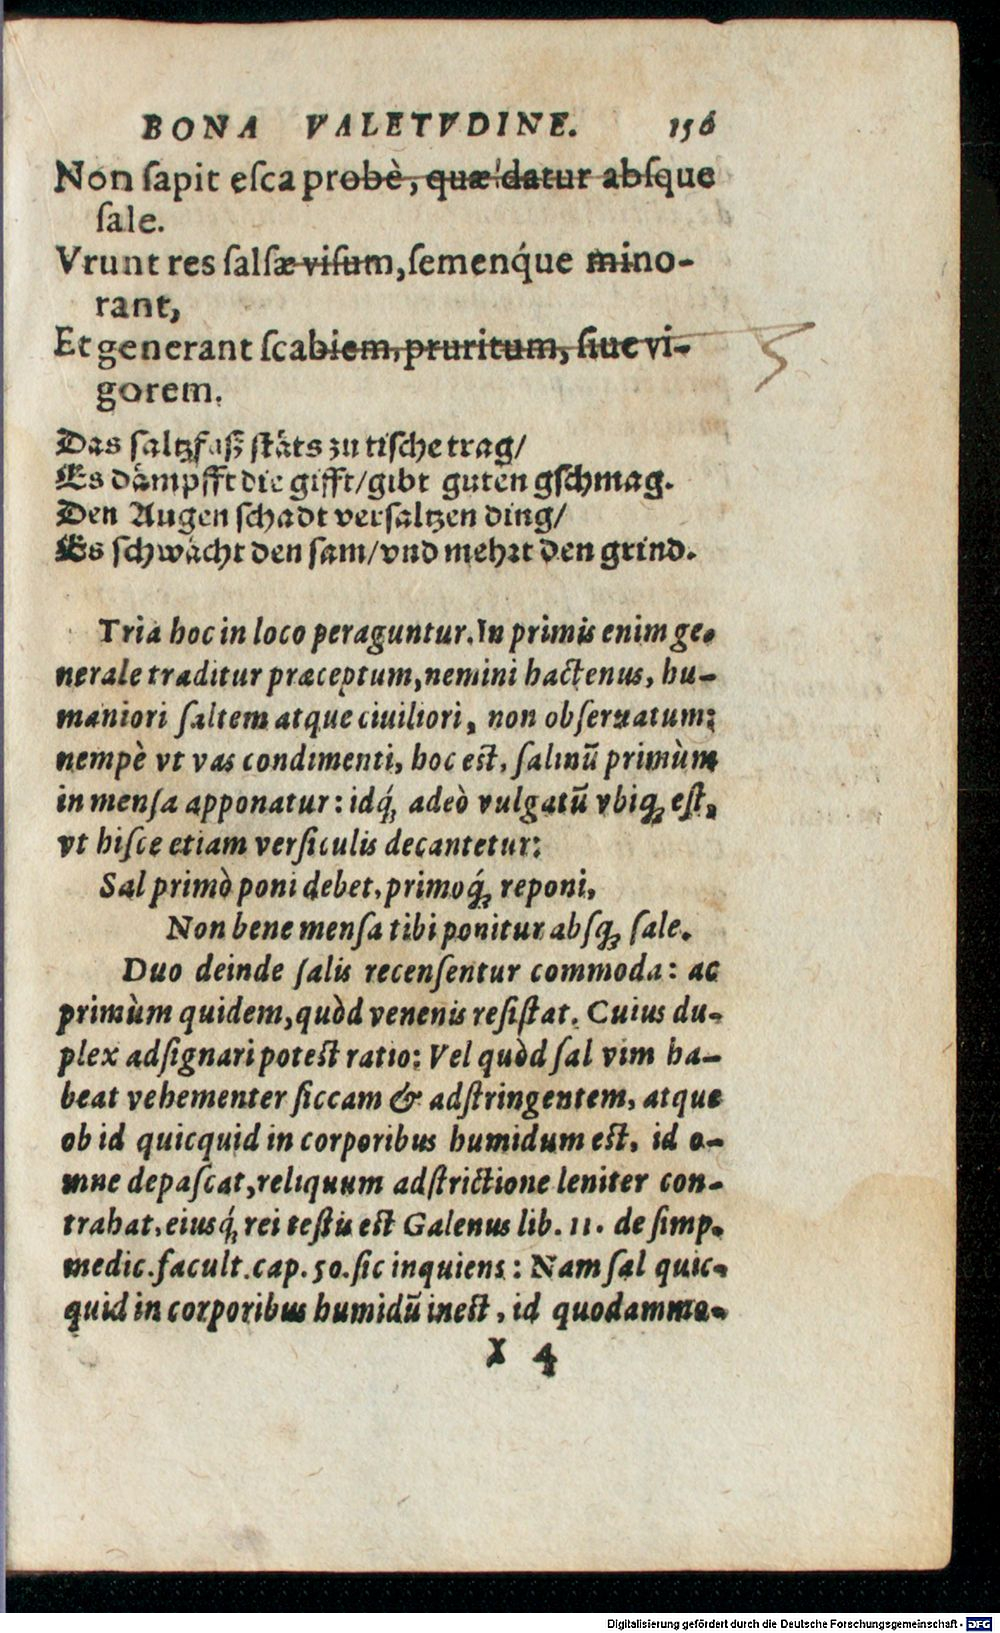 BONA VALETVDINE. 156
Non ſapit eſca probè, quæ datur abſque
ſale.
Vrunt res ſalſæ viſum, ſemenq́ue mino-
rant,
Et generant ſcabiem, pruritum, ſiue vi-
gorem.
Das ſaltzfaß ſtäts zu tiſche trag/
Es dämpfft die gifft/gibt guten gſchmag.
Den Augen ſchadt verſaltzen ding/
Es ſchwächt den ſam/vnd mehrt den grind.
Tria hoc in loco peraguntur. In primis enim ge-
nerale traditur præceptum, nemini hactenus, hu-
maniori ſaltem atque ciuiliori, non obſeruatum;
nempè vt vas condimenti, hoc eſt, ſalinū primùm
in menſa apponatur: idq́ꝫ adeò vulgatū vbiqꝫ eſt,
vt hiſce etiam verſiculis decantetur:
Sal primò poni debet, primoq́ꝫ reponi,
Non bene menſa tibi ponitur abſqꝫ ſale.
Duo deinde ſalis recenſentur commoda: ac
primùm quidem, quòd venenis reſiſtat. Cuius du-
plex adſignari poteſt ratio: Vel quòd ſal vim ha-
beat vehementer ſiccam & adſtringentem, atque
ob id quicquid in corporibus humidum eſt, id o-
mne depaſcat, reliquum adſtrictione leniter con-
trahat, eiusq́ꝫ rei teſtis eſt Galenus lib. 11. de ſimp.
medic. facult. cap. 50. ſic inquiens: Nam ſal quic-
quid in corporibus humidū ineſt, id quodammo-
X 4
Digitalisierung gefördert durch die Deutsche Forschungsgemeinschaft - DFG